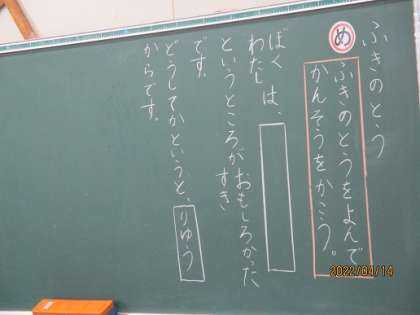 ふきのとう
め
ふきのとうをよんで
かんそうをかこう。
ぼく
わたし
は、
おもしろかった
というところが
すき
です。
どうしてかというと、りゆう
からです。
2022/04/14